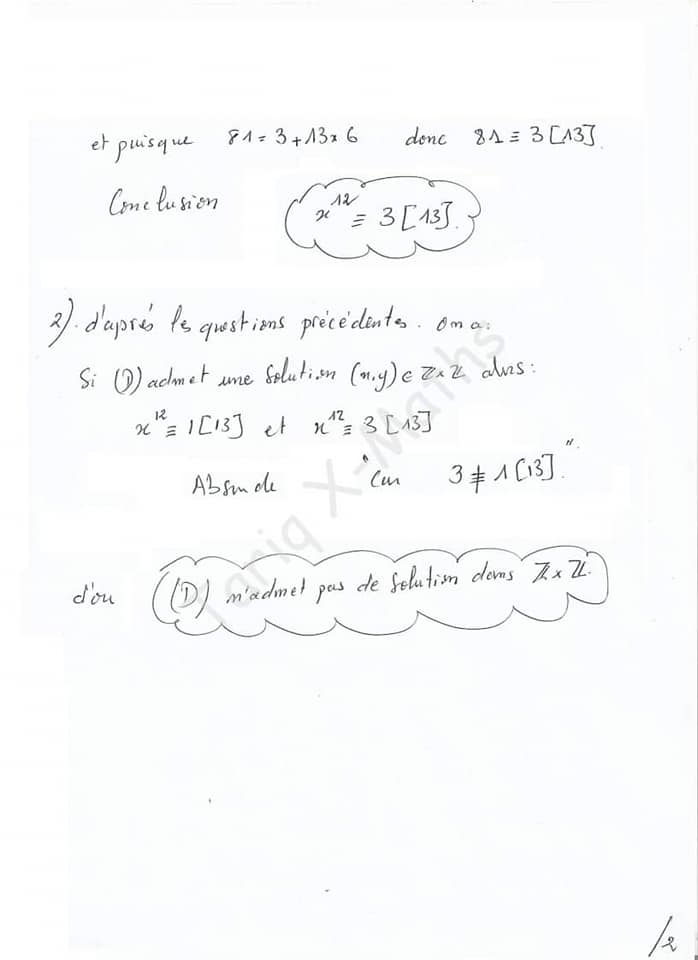 et puisque 81 = 3 + 13 x 6 donc 81 ≡ 3 [13].
Conclusion x^12 ≡ 3 [13].
2). d'après les questions précédentes. On a:
Si (D) admet une solution (x,y) ∈ ℤ x ℤ alors:
x^12 ≡ 1 [13] et x^12 ≡ 3 [13]
Absurde "Car 3 ≢ 1 [13]."
d'où (D) n'admet pas de solution dans ℤ x ℤ.
Tariq X-Maths
/2